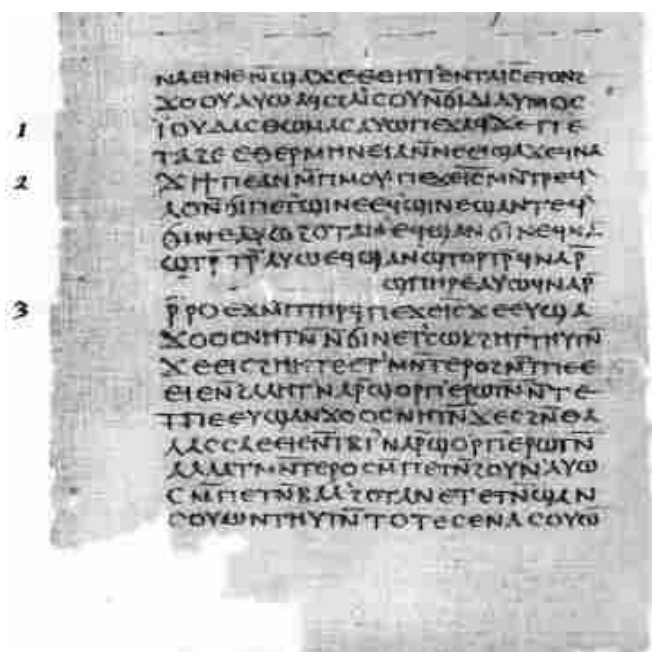 ⲛⲁⲉⲓⲛⲉⲛ̄ϣⲁϫⲉⲉⲑⲏⲡ`ⲉⲛⲧⲁⲓ̅ⲥ̅ⲉⲧⲟⲛϩ
ϫⲟⲟⲩⲁⲩⲱⲁϥⲥϩⲁⲓⲥⲟⲩⲛ̄ϭⲓⲇⲓⲇⲩⲙⲟⲥ
1 ⲓ̈ⲟⲩⲇⲁⲥⲑⲱⲙⲁⲥⲁⲩⲱⲡⲉϫⲁϥϫⲉⲡⲉ
ⲧⲁϩⲉⲉⲑⲉⲣⲙⲏⲛⲉⲓⲁⲛ̄ⲛⲉⲉⲓϣⲁϫⲉϥⲛⲁ
2 ϫⲓϯⲡⲉⲁⲛⲙ̄ⲡⲙⲟⲩⲡⲉϫⲉⲓ̅ⲥ̅ⲙⲛ̄ⲧⲣⲉϥ`
ⲗⲟⲛ̄ϭⲓⲡⲉⲧ`ϣⲓⲛⲉⲉϥϣⲓⲛⲉϣⲁⲛⲧⲉϥ`
ϭⲓⲛⲉⲁⲩⲱϩⲟⲧⲁⲛ`ⲉϥϣⲁⲛϭⲓⲛⲉϥⲛⲁ
ϣⲧⲣ̄ⲧⲣ̄ⲁⲩⲱⲉϥϣⲁⲛϣⲧⲟⲣⲧⲣ̄ϥⲛⲁⲣ̄
ϣⲡⲏⲣⲉⲁⲩⲱϥⲛⲁⲣ̄
3 ⲣ̄ⲣⲟⲉϫⲙ̄ⲡⲧⲏⲣϥⲡⲉϫⲉⲓ̅ⲥ̅ϫⲉⲉⲩϣⲁ
ϫⲟⲟⲥⲛⲏⲧⲛ̄ⲛ̄ϭⲓⲛⲉⲧ`ⲥⲱⲕϩⲏⲧ`ⲧⲏⲩⲧⲛ̄
ϫⲉⲉⲓⲥϩⲏⲏⲧⲉⲉⲧ`ⲙⲛ̄ⲧⲉⲣⲟϩⲛ̄ⲧⲡⲉⲉ
ⲉⲓⲉⲛ̄ϩⲁⲗⲏⲧ`ⲛⲁⲣ̄ϣⲟⲣⲡ`ⲉⲣⲱⲧⲛ̄ⲛ̄ⲧⲉ
ⲧⲡⲉⲉⲩϣⲁⲛϫⲟⲟⲥⲛⲏⲧⲛ̄ϫⲉⲥϩⲛ̄ⲑⲁ
ⲗⲁⲥⲥⲁⲉⲉⲓⲉⲛ̄ⲧⲃⲧ`ⲛⲁⲣ̄ϣⲟⲣⲡ`ⲉⲣⲱⲧⲛ̄
ⲁⲗⲗⲁⲧⲙⲛ̄ⲧⲉⲣⲟⲥⲙ̄ⲡⲉⲧⲛ̄ϩⲟⲩⲛ`ⲁⲩⲱ
ⲥⲙ̄ⲡⲉⲧⲛ̄ⲃⲁⲗ`ϩⲟⲧⲁⲛⲉⲧⲉⲧⲛ̄ϣⲁⲛ
ⲥⲟⲩⲱⲛⲧⲏⲩⲧⲛ̄ⲧⲟⲧⲉⲥⲉⲛⲁⲥⲟⲩⲱ